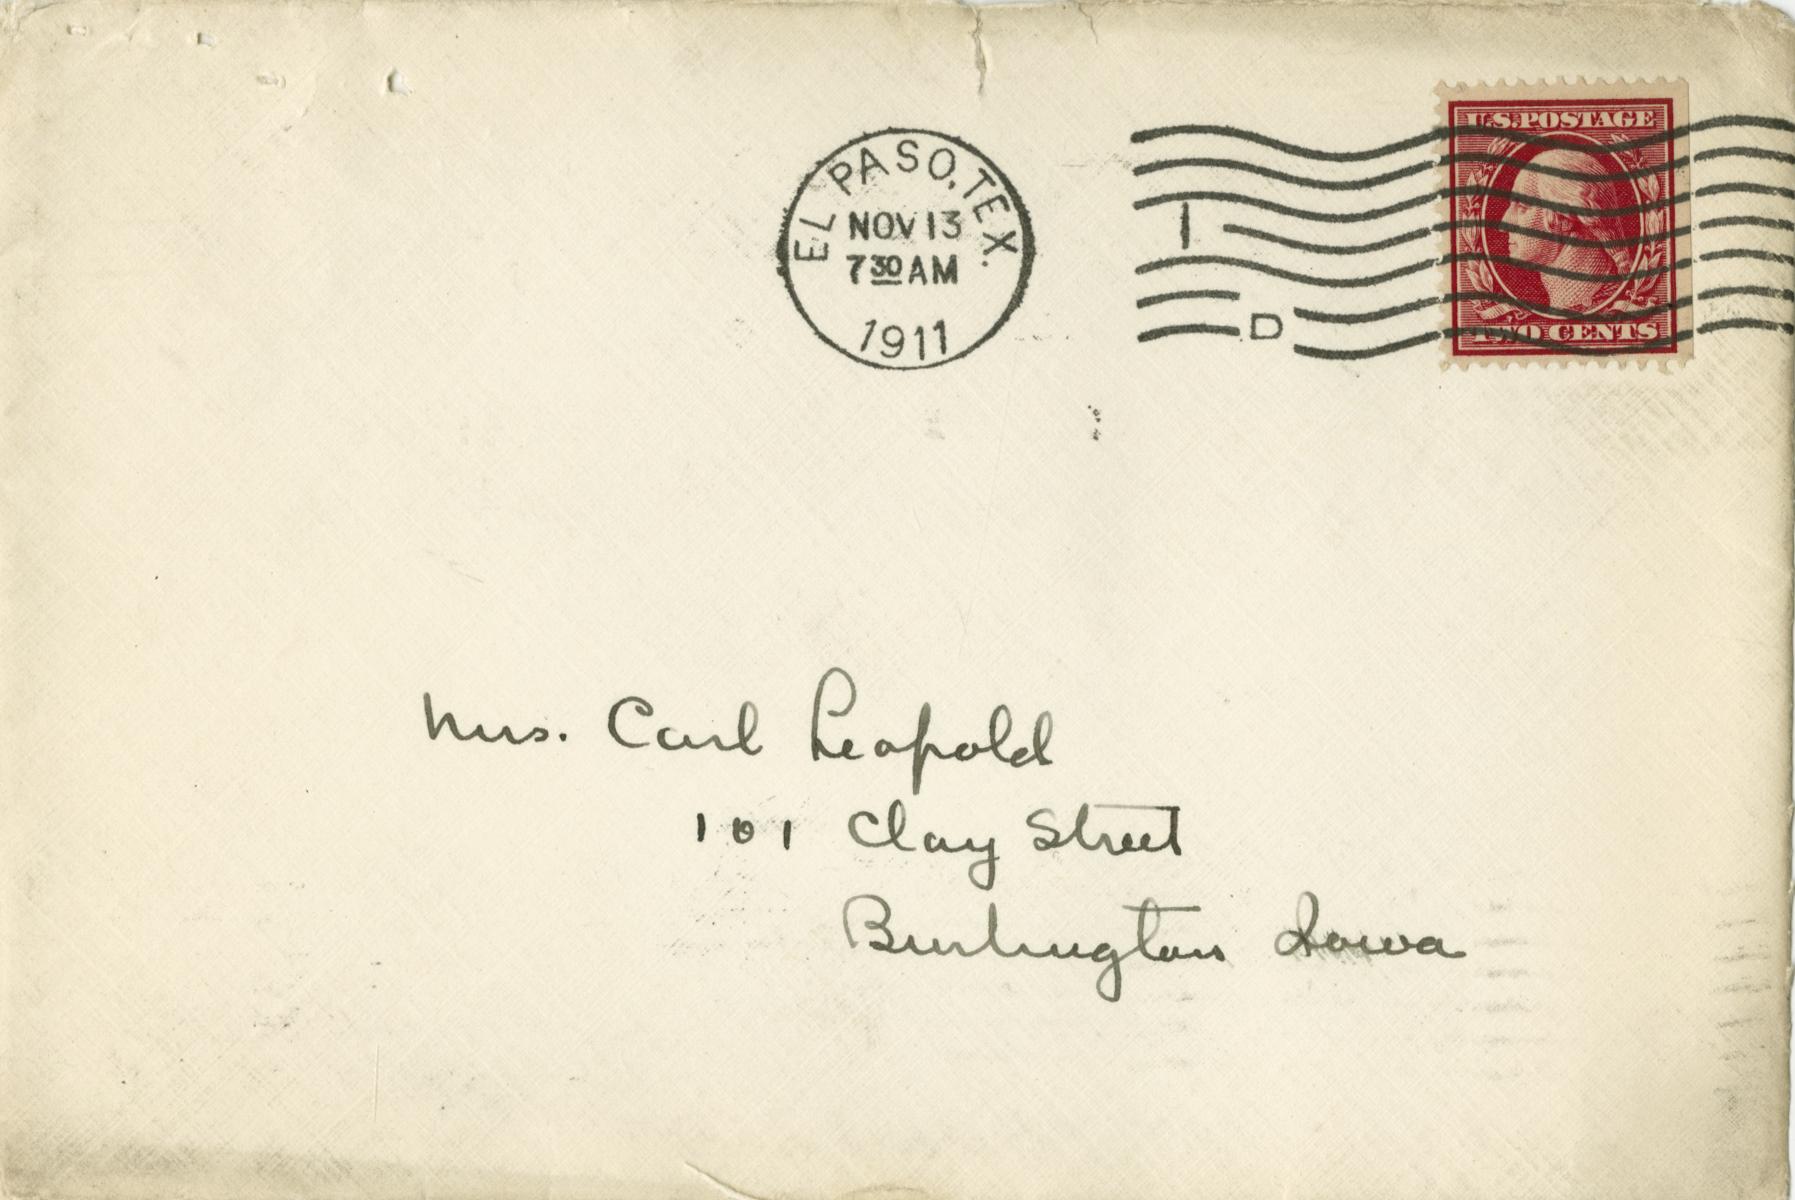 EL PASO, TEX.
NOV 13
7 30 AM
1911
1
D
U.S. POSTAGE
TWO CENTS
Mrs. Carl Leopold
101 Clay Street
Burlington Iowa